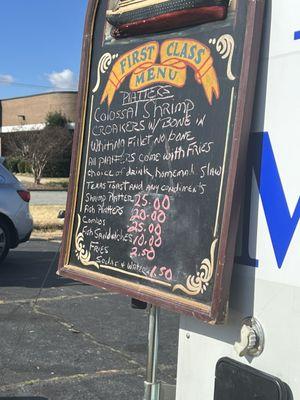 FIRST CLASS
MENU
PLATTERS
COLOSSAL SHRIMP
CROAKERS W/ BONE IN
WHITING FILLET NO BONE
All PLATTERS COME WITH FRIES
choice of drink, homemade slaw
TEXAS TOAST AND ANY CONDIMENTS
Shrimp Platter 25.00
Fish Platters 20.00
Combos 25.00
Fish Sandwiches 10.00
FRIES 2.50
Sodas & Water 1.50